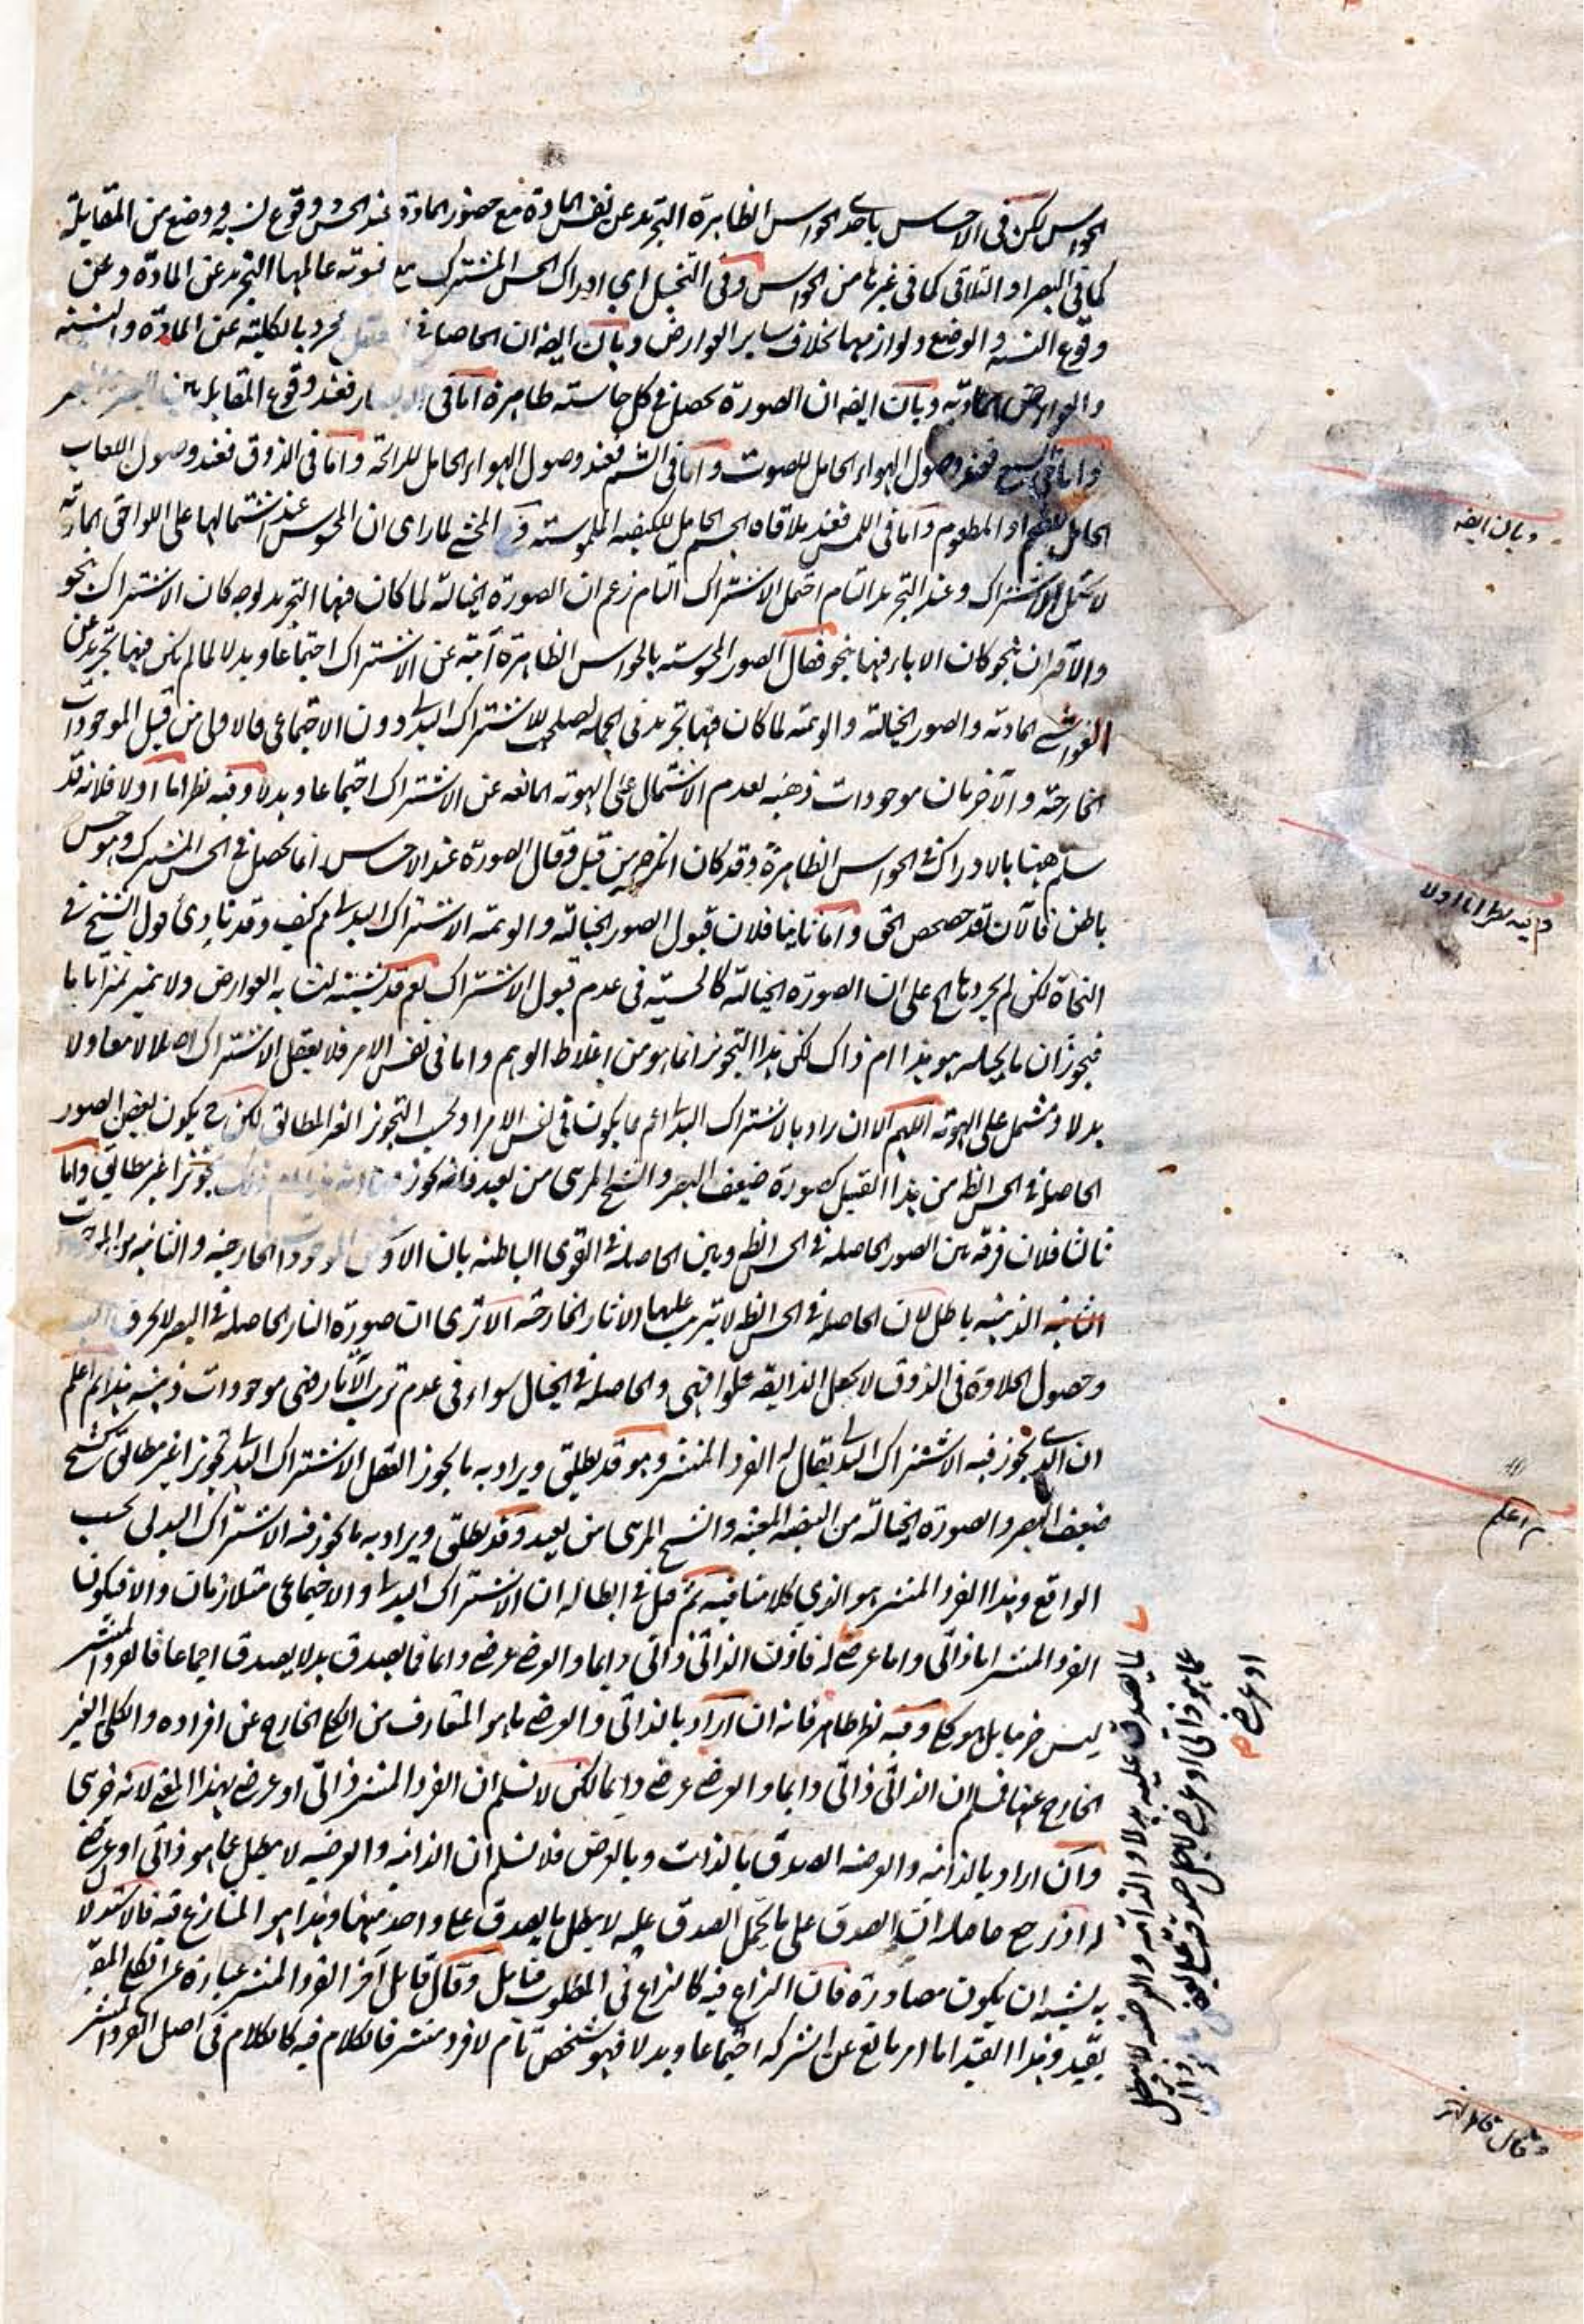 الحواس لكن في الاحساس باحد الحواس الظاهرة التجريد عن نفس المادة مع حضور المادة عند الحس و وقوع نسبة و وضع من المقابلة
كما في البصر او التلاقي كما في غيرها من الحواس وفي التخيل اي ادراك الحس المشترك مع عالمها التجريد عن المادة وعن
وقوع النسبة و الوضع ولوازمها بخلاف ساير العوارض وبان ايضا ان الحاصل في مجرد بالكلية عن المادة والنسبة
والعوارض المادية وبان ايضا ان الصورة تحصل في كل حاسة ظاهرة اما في فعند وقوع المقابلة
واما في السمع فعند وصول الهواء الحامل للصوت واما في الشم فعند وصول الهواء الحامل للرائحة واما في الذوق فعند وصول اللعاب
الحامل للطعم او المطعوم واما في اللمس فعند ملاقاة الجسم الحامل للكيفية الملموسة المحشي لما راى ان المحسوس عند اشتمالها على اللواحق المادية
لا تحتمل الاشتراك وعند التجريد التام احتمل الاشتراك التام زعم ان الصورة الخيالية لما كان فيها التجريد بوجه كان الاشتراك بنحو
والاقران بنحو كان الاباء فيها بنحو فقال الصور المحسوسة بالحواس الظاهرة آبية عن الاشتراك اجتماعا وبدلا لما لم يكن فيها تجريد عن
الغواشي المادية والصور الخيالية والوهمية لما كان فيها تجريد في الجملة تصلح للاشتراك البدلي دون الاجتماعي فالاولى من قبيل الموجودات
الخارجية والاخريان موجودات ذهنية لعدم الاشتمال على الهوية المانعة عن الاشتراك اجتماعا وبدلا وفيه نظر اما اولا فلانه قد
سلم ههنا بالادراك في الحواس الظاهرة وقد كان انكره من قبل وقال الصورة عند الاحساس انما تحصل في الحس المشترك وهو حس
باطن فالآن قد حصحص الحق واما ثانيا فلان قبول الصور الخيالية والوهمية الاشتراك البدلي كيف وقد نادى قول الشيخ في
النجاة لكن لم يجردها الخ على ان الصورة الخيالية كالحسية في عدم قبول الاشتراك نعم قد به العوارض ولا تميز تميزا تاما
فيجوز ان ما يخيله هو هذا ام ذاك لكن هذا التجويز انما هو من اغلاط الوهم واما في نفس الامر فلا يعقل الاشتراك اصلا لا معا ولا
بدلا ومشتمل على الهوية اللهم الا ان يراد بالاشتراك البدلي اعم مما يكون في نفس الامر او بحسب التجويز الغير المطابق لكن ح يكون بعض الصور
الحاصلة في الحس الظ من هذا القبيل كصورة ضعيف البصر والشبح المرئي من بعيد فانه يجوز تجويزا غير مطابق واما
ثالثا فلان فرقه بين الصور الحاصلة في الحس الظ وبين الحاصلة في القوى الباطنة بان الاولى الخارجية والثانية من
الذهنية باطل لان الحاصلة في الحس الظ لا يترتب عليها الاثار الخارجية الا ترى ان صورة النار الحاصلة في البصر لا تحرق
وحصول الحلاوة في الذوق لا يجعل الذايقة حلوا فهي والحاصلة في الخيال سواء في عدم ترتب الآثار فهي موجودات ذهنية هذا ثم اعلم
ان الذي يجوز فيه الاشتراك البدلي يقال له الفرد المنتشر وهو قد يطلق ويراد به ما يجوز العقل الاشتراك البدلي تجويزا غير مطابق كشبح
ضعيف البصر والصورة الخيالية من البيضة المعينة والشبح المرئي من بعيد وقد يطلق ويراد به ما يجوز فيه الاشتراك البدلي بحسب
الواقع وهذا الفرد المنتشر هو الذي كلامنا فيه ثم قيل في ابطاله ان الاشتراك البدلي والاجتماعي متلازمان والا فيكون
الفرد المنتشر اما ذاتي واما عرضي له فاذن الذاتي ذاتي دايما والعرضي عرضي دايما فما يصدق بدلا يصدق اجماعا فالفرد المنتشر
ليس جزئيا بل هو كلي وفيه نظر ظاهر فانه ان اراد بالذاتي والعرضي ما هو المتعارف من الكلي الخارج عن افراده والكلي الغير
الخارج عنها فسلم ان الذاتي ذاتي دايما والعرضي عرضي دايما لكن لا نسلم ان الفرد المنتشر ذاتي او عرضي بهذا المعنى لانه جزئي
وان اراد بالذاتية والعرضية الصدق بالذات وبالعرض فلا نسلم ان الذاتية والعرضية لا يبطل عما هو ذاتي او عرضي
له اذ ح حاصله ان الصدق على ما يحتمل الصدق عليه لا يبطل ما يصدق على واحد منهما وهذا هو المتنازع فيه فالاستدلال
به يشبه ان يكون مصادرة فان النزاع فيه كالنزاع في المطلوب فتأمل وقال قايل آخر الفرد المنتشر عبارة عن الكلي المقيد
بقيد وهذا القيد اما امر مانع عن الشركة اجتماعا وبدلا فهو شخص تام لا فرد منتشر فالكلام فيه كالكلام في اصل الفرد المنتشر
لما يصدق عليه بدلا والذاتية والعرضية لا يبطل
عما هو ذاتي او عرضي
او عرضي
وبان ايضا
وفيه نظر اما اولا
ثم اعلم
وقال قايل آخر